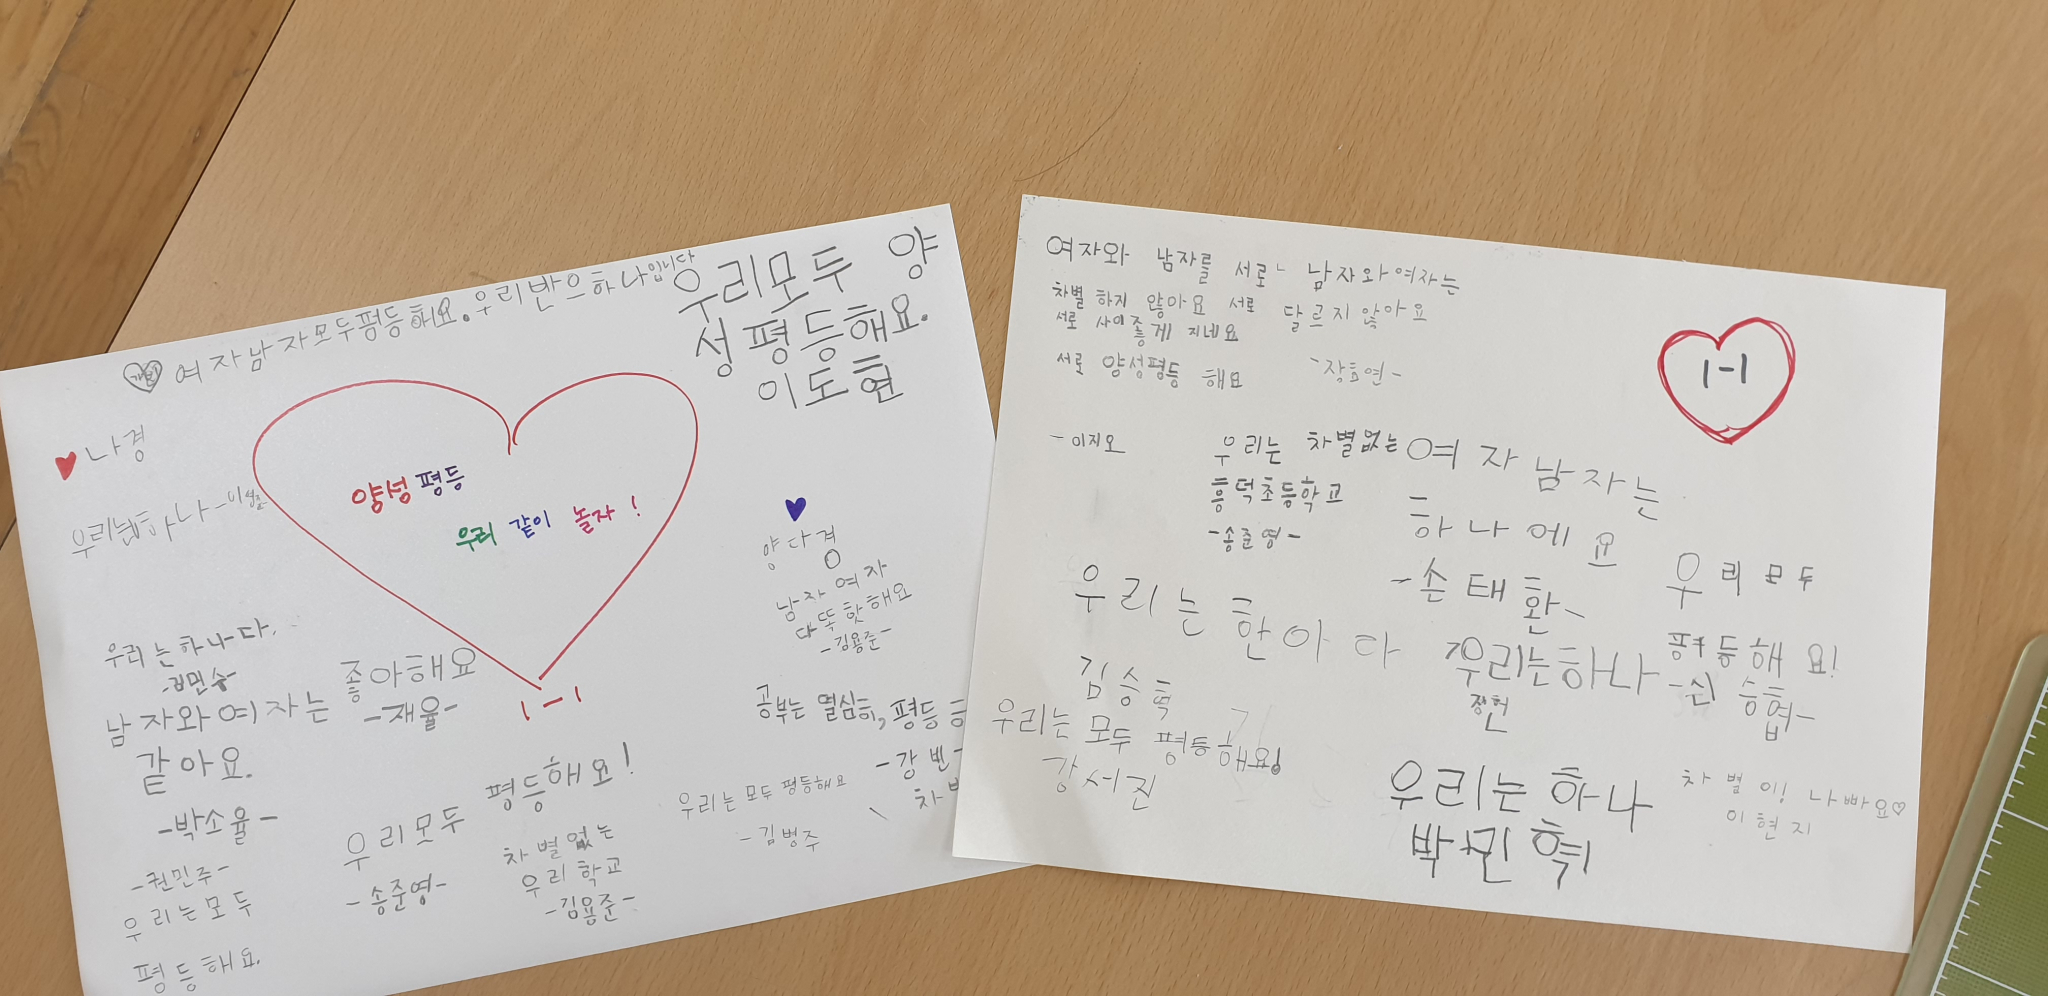 여자남자모두평등해요.우리반으하나입니다
우리모두 양
성평등해요.
이도현
나경
우리는하나다.
남자와여자는
같아요.
-박소율-
좋아해요
-재율-
양성평등
우리 같이 놀자!
1-1
양다경
남자여자
다똑핫해요
-김용준-
공부는 열심히, 평등
-강빈
-권민주-
우리는모두
평등해요.
우리모두 평등해요!
-송준영-
차별없는
우리학교
-김용준-
우리는 모두 평등해요
-김병주
여자와 남자를 서로
차별하지 않아요 서로
서로 사이좋게 지네요
서로 양성평등 해요
-이지오
남자와여자는
달르지않아요
-장효연-
1-1
우리는 차별없는
흥덕초등학교
-송준영-
여자남자는
하나에요
-손태환-
우리모두
평등해요!
우리는한아다
김승혁
우리는하나
우리는 모두 평등해요!
강서진
우리는 하나
박민혁
차별이! 나빠요♡
이현지